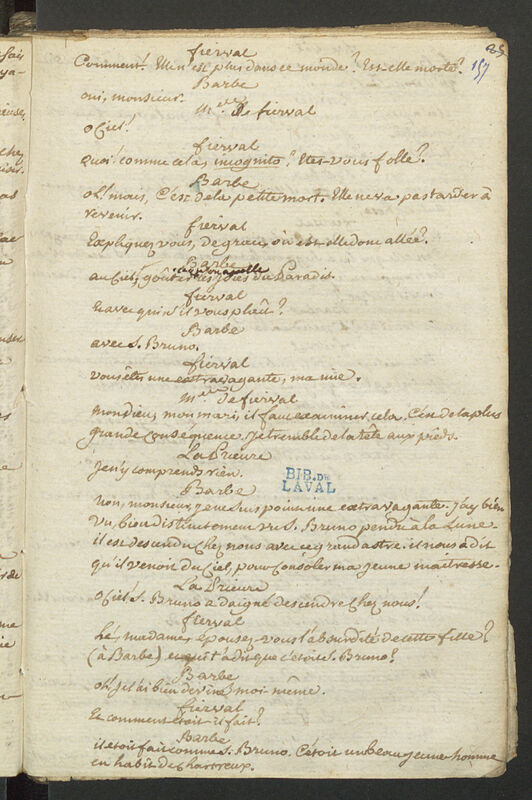 85
fierval
Comment! Elle n'est plus dans ce monde? Est-elle morte?
157
Barbe
oui, monsieur.
Mde De fierval
o Ciel!
fierval
quoi! comme cela, incognito? Etes-vous folle?
Barbe
oh! mais, C'est de la petite mort. Elle ne va pas tarder à
revenir.
fierval
Expliquez vous, de grace, où est-elle donc allée?
Barbe
au Ciel, goûter les joies du Paradis.
fierval
Et avec qui, s'il vous plaît?
Barbe
avec S. Bruno.
fierval
vous êtes une extravagante, ma mie.
Mde De fierval
mon dieu, mon mari, il faut examiner cela. C'est de la plus
grande Conséquence. Je tremble de la tête aux pieds.
La Prieure
Je n'y comprends rien.
BIB. DE
LAVAL
Barbe
non, monsieur, je ne suis point une extravagante. J'ay bien
vu, bien distinctement vu S. Bruno pendu à la Lune
il est descendu chez nous avec ce grand astre. il nous a dit
qu'il venoit du Ciel, pour Consoler ma jeune maitresse.
La Prieure
o Ciel! S. Bruno a daigné descendre chez nous!
fierval
hé, madame, épousez-vous l'absurdité de cette fille?
(à Barbe) et qui t'a dit que c'étoit S. Bruno?
Barbe
oh! je l'ai bien deviné moi-même.
fierval
Et comment étoit-il fait?
Barbe
il étoit fait comme S. Bruno. C'étoit un beau jeune homme
en habit de Chartreux.